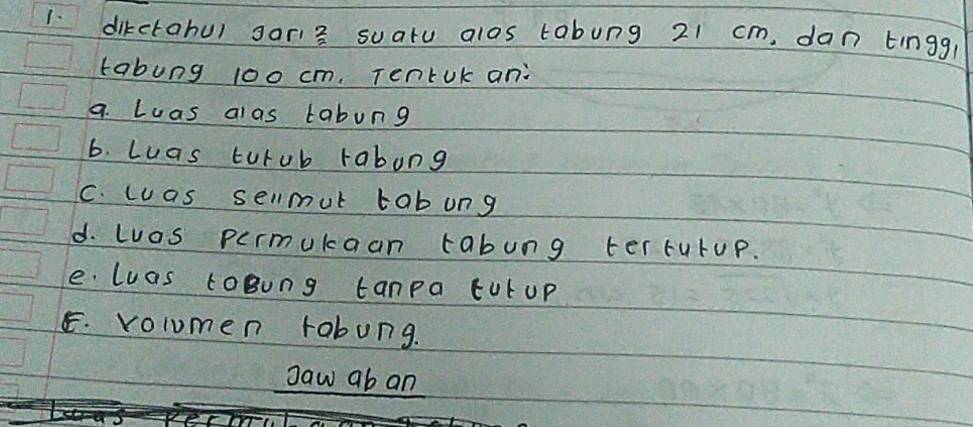 1. diketahui garis suatu alas tabung 21 cm. dan tinggi
tabung 100 cm. Tentukan:
a. Luas alas tabung
b. Luas tutub tabung
c. Luas selimut tabung
d. Luas permukaan tabung tertutup.
e. Luas tabung tanpa tutup
F. volumen tabung.
Jawaban
Luas